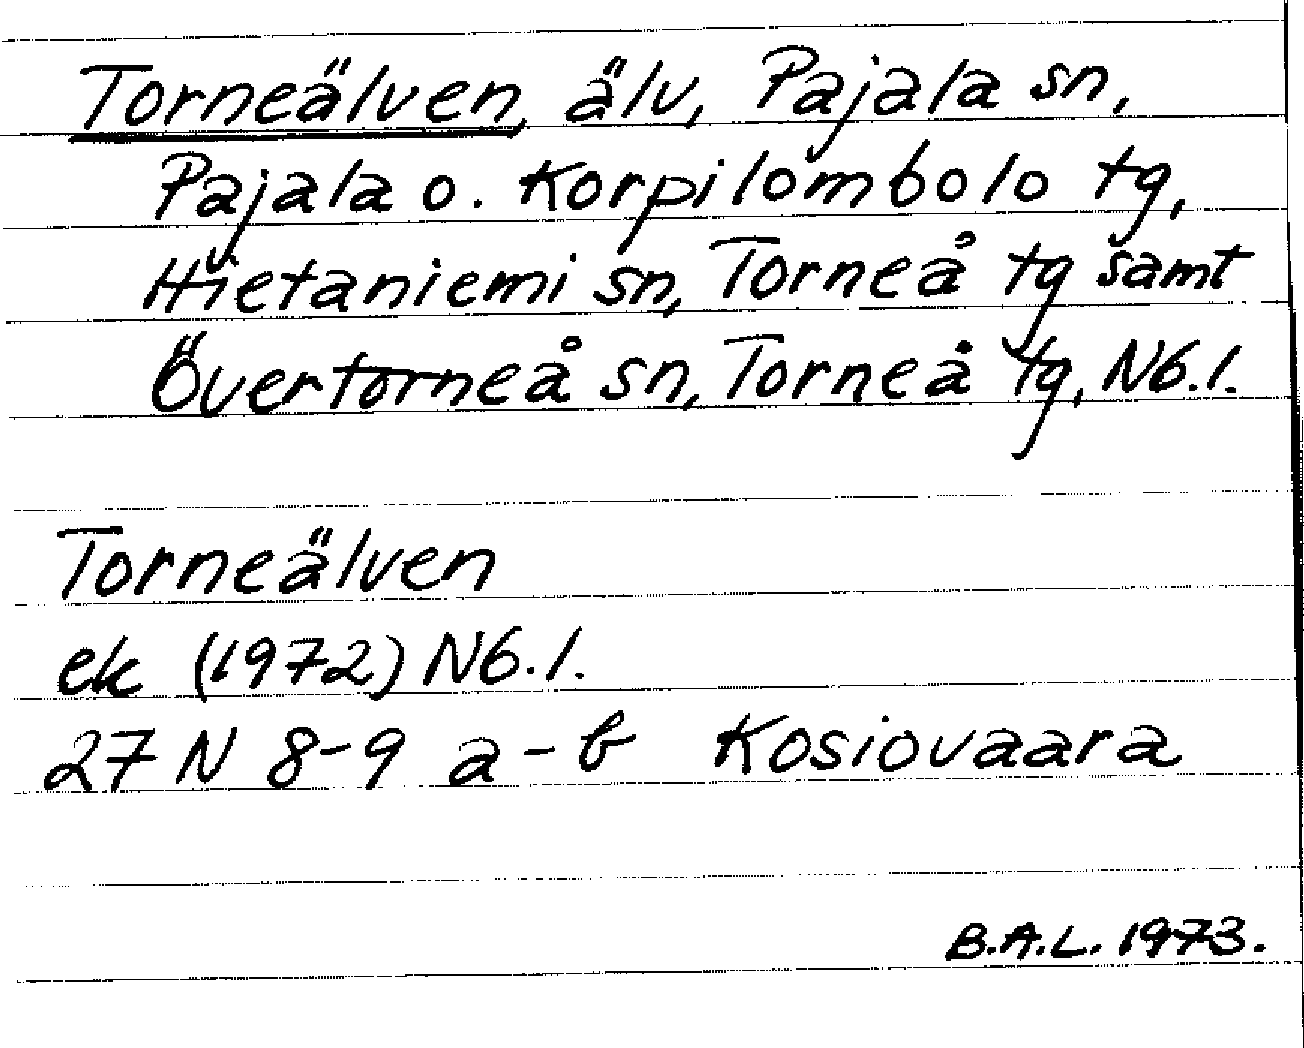 Torneälven, älv, Pajala sn,
Pajala o. Korpilombolo tg,
Hietaniemi sn, Torneå tg samt
Övertorneå sn, Torneå tg, Nb.l.
Torneälven
ek (1972) Nb.l.
27 N 8-9 a-b Kosiovaara
B.A.L. 1973.